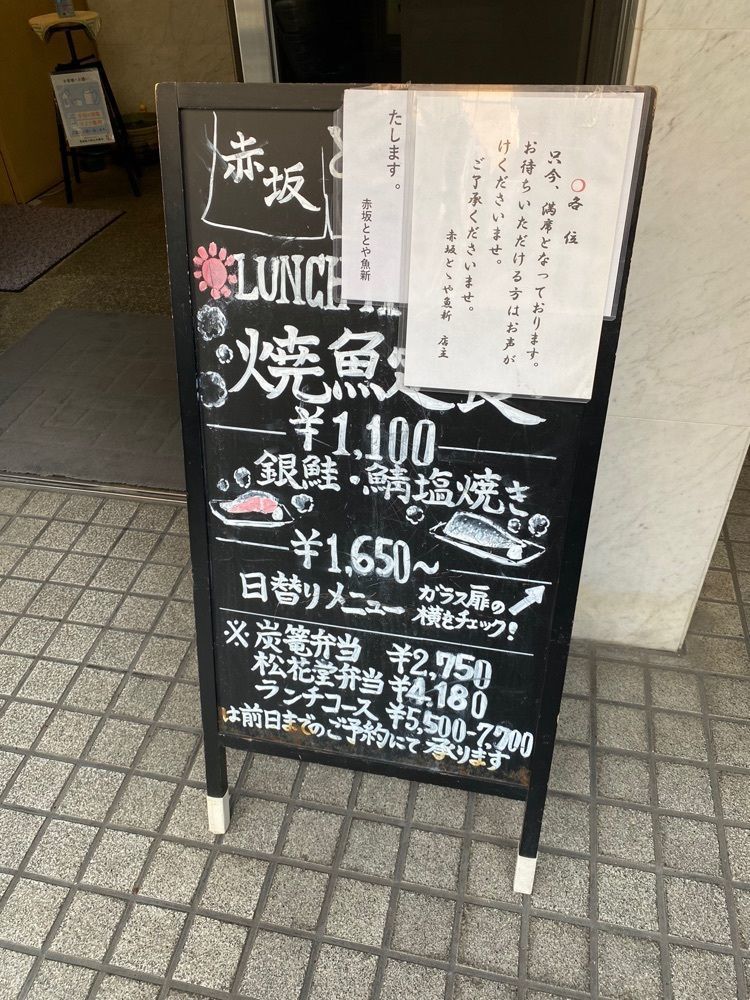 赤坂
LUNCH
焼魚定食
¥1,100
銀鮭・鯖塩焼き
¥1,650~
日替りメニュー
ガラス扉の
横もチェック!
※炭篭弁当 ¥2,750
松花堂弁当 ¥4,180
ランチコース ¥5,500-7,700
は前日までのご予約にて承ります
たします。
赤坂ととや魚新
○各位
只今、満席となっております。
お待ちいただける方はお声が
けくださいませ。
ご了承くださいませ。
赤坂とゝや魚新 店主